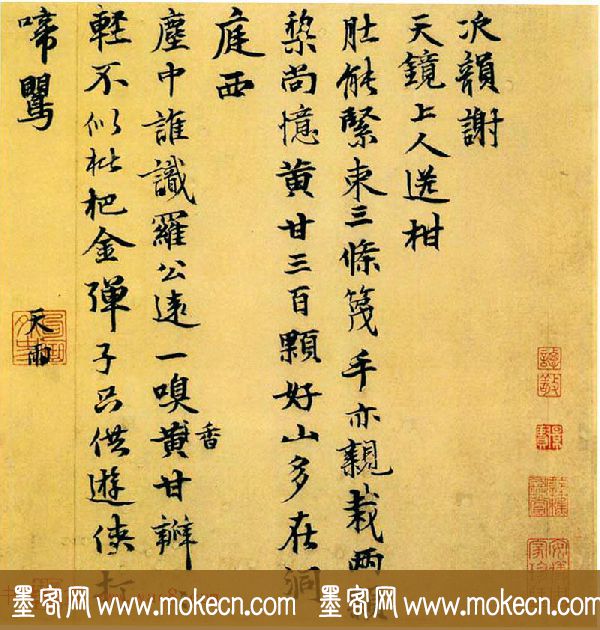 次韻謝
天鏡上人送柑
肚能緊束三條篾手亦親栽兩
棃尚憶黃甘三百顆好山多在洞
庭西
塵中誰識羅公遠一嗅黃甘瓣
香
輕不似枇杷金彈子只供遊俠打
啼鶯
天雨
墨客网 www.mokecn.com 墨客网 www.mokecn.com